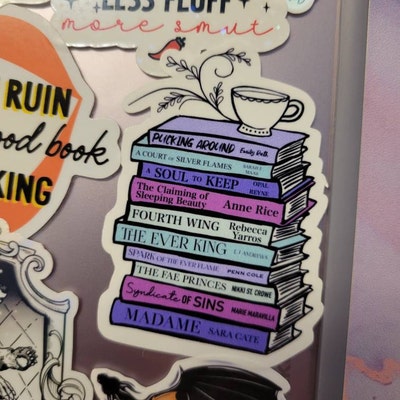 LESS FLUFF
more smut
RUIN
good book
KING
PUCKING AROUND Emily Rath
A COURT OF SILVER FLAMES SARAH J MAAS
A SOUL TO KEEP OPAL REYNE
The Claiming of Sleeping Beauty Anne Rice
FOURTH WING Rebecca Yarros
THE EVER KING LJ ANDREWS
SPARK OF THE EVER FLAME PENN COLE
THE FAE PRINCES NIKKI ST. CROWE
Syndicate OF SINS MARIE MARAVILLA
MADAME SARA CATE